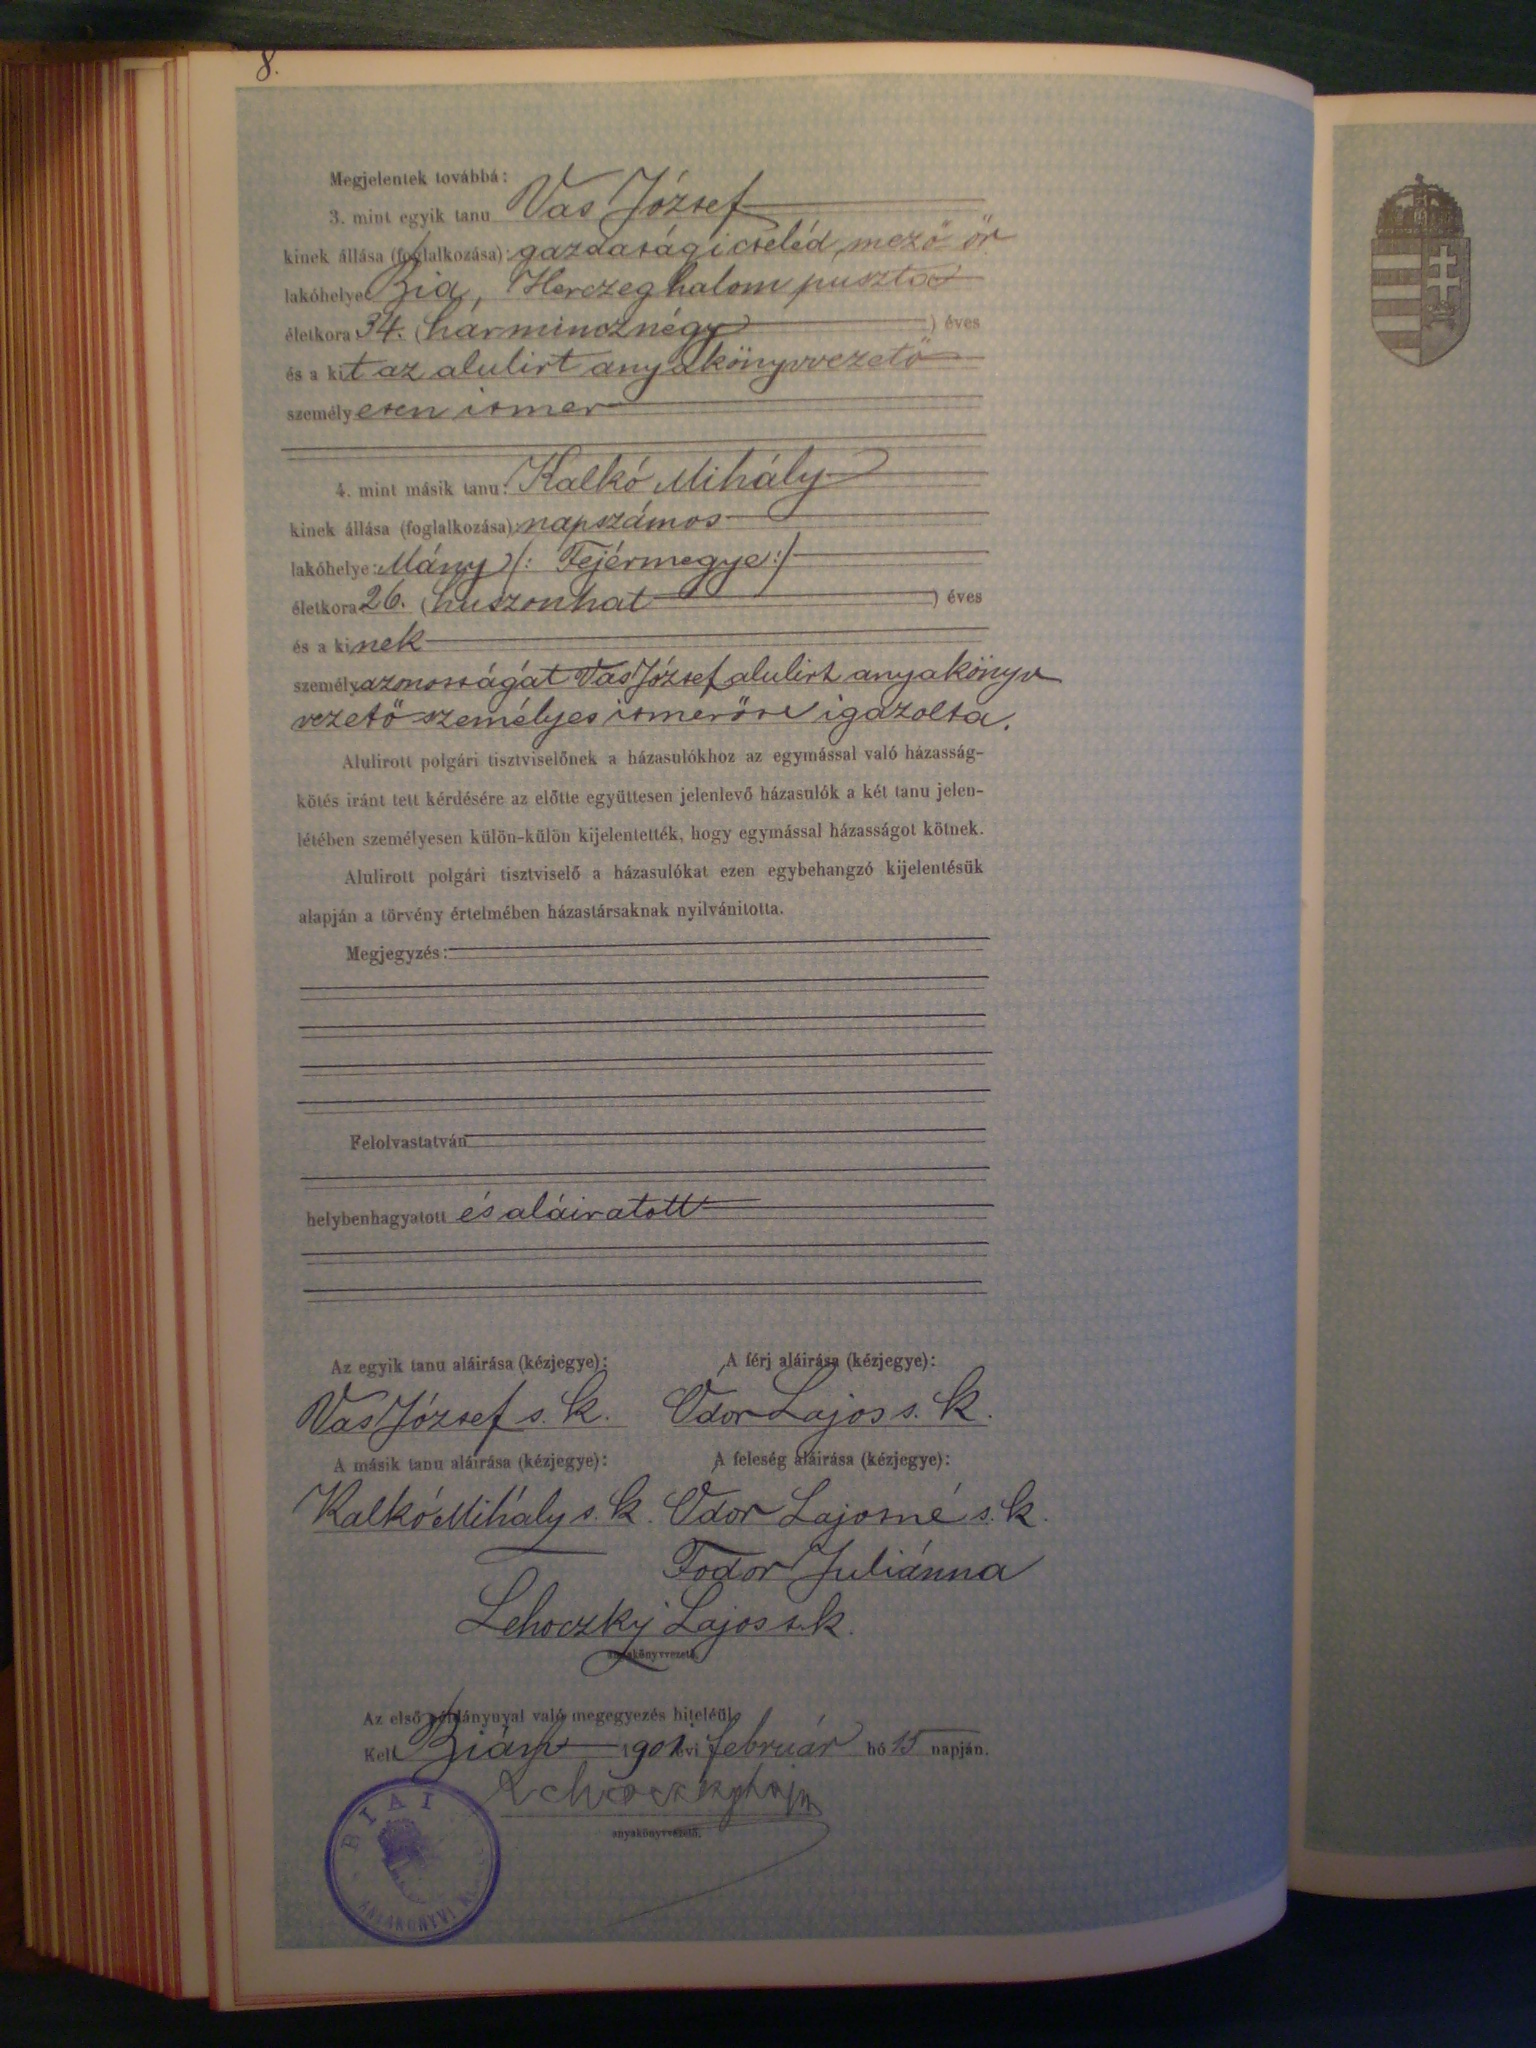 8.
Megjelentek továbbá:
3. mint egyik tanu Vas József
kinek állása (foglalkozása): gazdasági cseléd, mező őr
lakóhelye Bia, Herczeghalom puszta
életkora 34. (harmincznégy) éves
és a kit az alulirt anyakönyvvezető
személyesen ismer
4. mint másik tanu: Kalkó Mihály
kinek állása (foglalkozása): napszámos
lakóhelye: Mány /: Fejérmegye :/
életkora 26. (huszonhat) éves
és a kinek
személyazonosságát Vas József alulirt anyakönyv
vezető személyes ismerőse igazolta.
Alulirott polgári tisztviselőnek a házasulókhoz az egymással való házasság-
kötés iránt tett kérdésére az előtte együttesen jelenlevő házasulók a két tanu jelen-
létében személyesen külön-külön kijelentették, hogy egymással házasságot kötnek.
Alulirott polgári tisztviselő a házasulókat ezen egybehangzó kijelentésük
alapján a törvény értelmében házastársaknak nyilvánitotta.
Megjegyzés:
Felolvastatván
helybenhagyatott és aláiratott
Az egyik tanu aláirása (kézjegye): A férj aláirása (kézjegye):
Vas József s. k. Ódor Lajos s. k.
A másik tanu aláirása (kézjegye): A feleség aláirása (kézjegye):
Kalkó Mihály s. k. Ódor Lajosné s. k.
Fodor Juliánna
Lehoczky Lajos s. k.
anyakönyvvezető.
Az első példánynyal való megegyezés hiteléül.
Kelt Bián 1901 évi február hó 15 napján.
Lehoczky Lajos
anyakönyvvezető.
BIAI
ANYAKÖNYVI